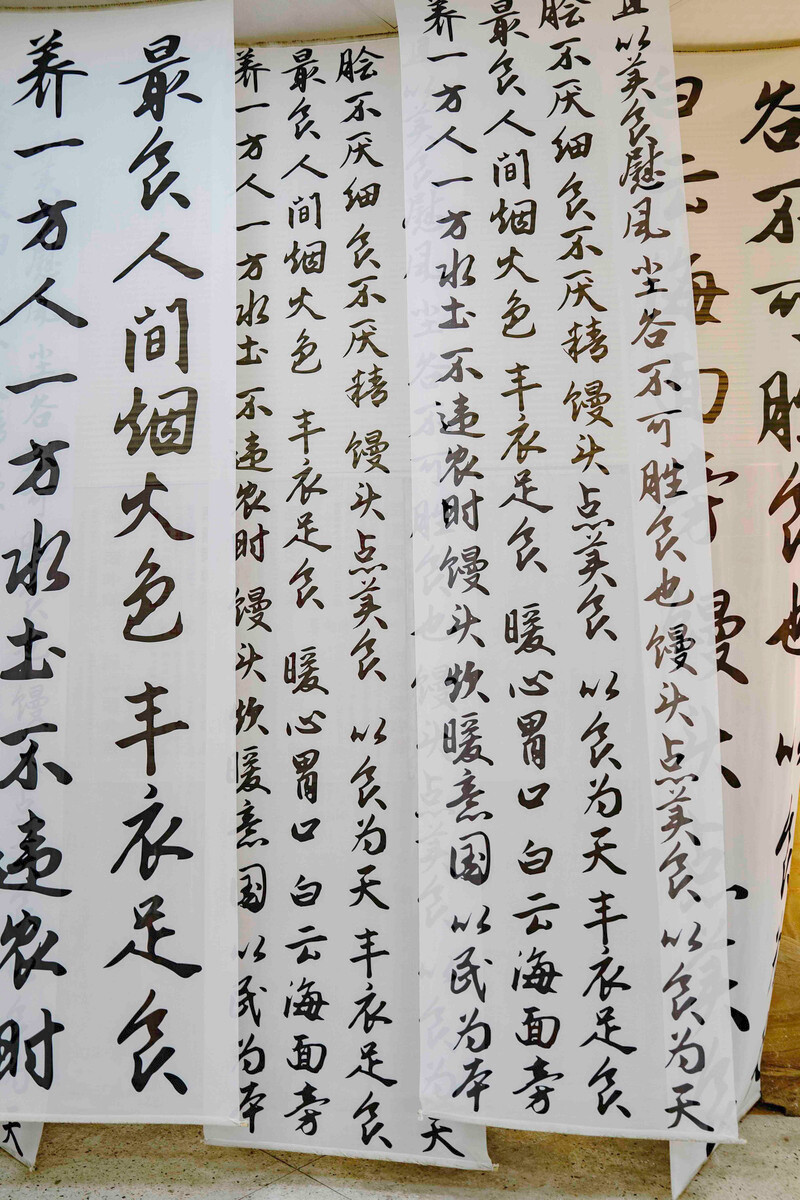 谷不可胜食也 以
白云海面旁
且以美食慰风尘谷不可胜食也馒头点美食以食为天
脍不厌细食不厌精馒头点美食 以食为天丰衣足食
最食人间烟火色 丰衣足食 暖心胃口 白云海面旁
养一方人一方水土不违农时馒头炊暖意国以民为本
天
脍不厌细食不厌精 馒头点美食 以食为天丰衣足食
最食人间烟火色 丰衣足食 暖心胃口 白云海面旁
养一方人一方水土不违农时 馒头炊暖意国以民为本
最食人间烟火色 丰衣足食
养一方人一方水土不违农时